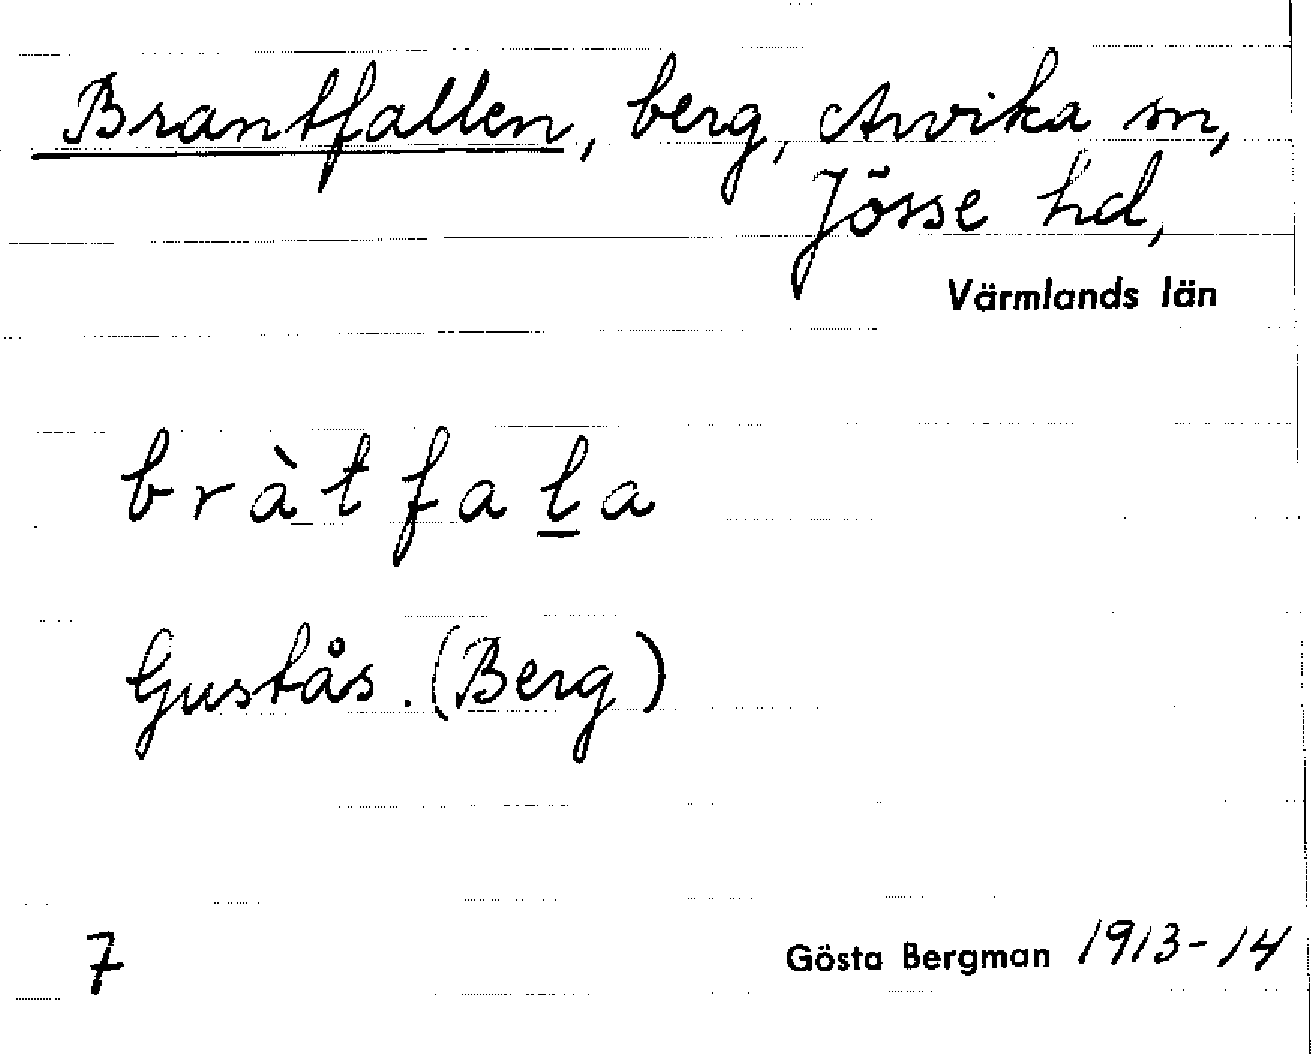 Brantfallen, berg, Arvika sn,
Jösse hd,
Värmlands län
bràtfal̲a
Gustås. (Berg)
7
Gösta Bergman 1913-14